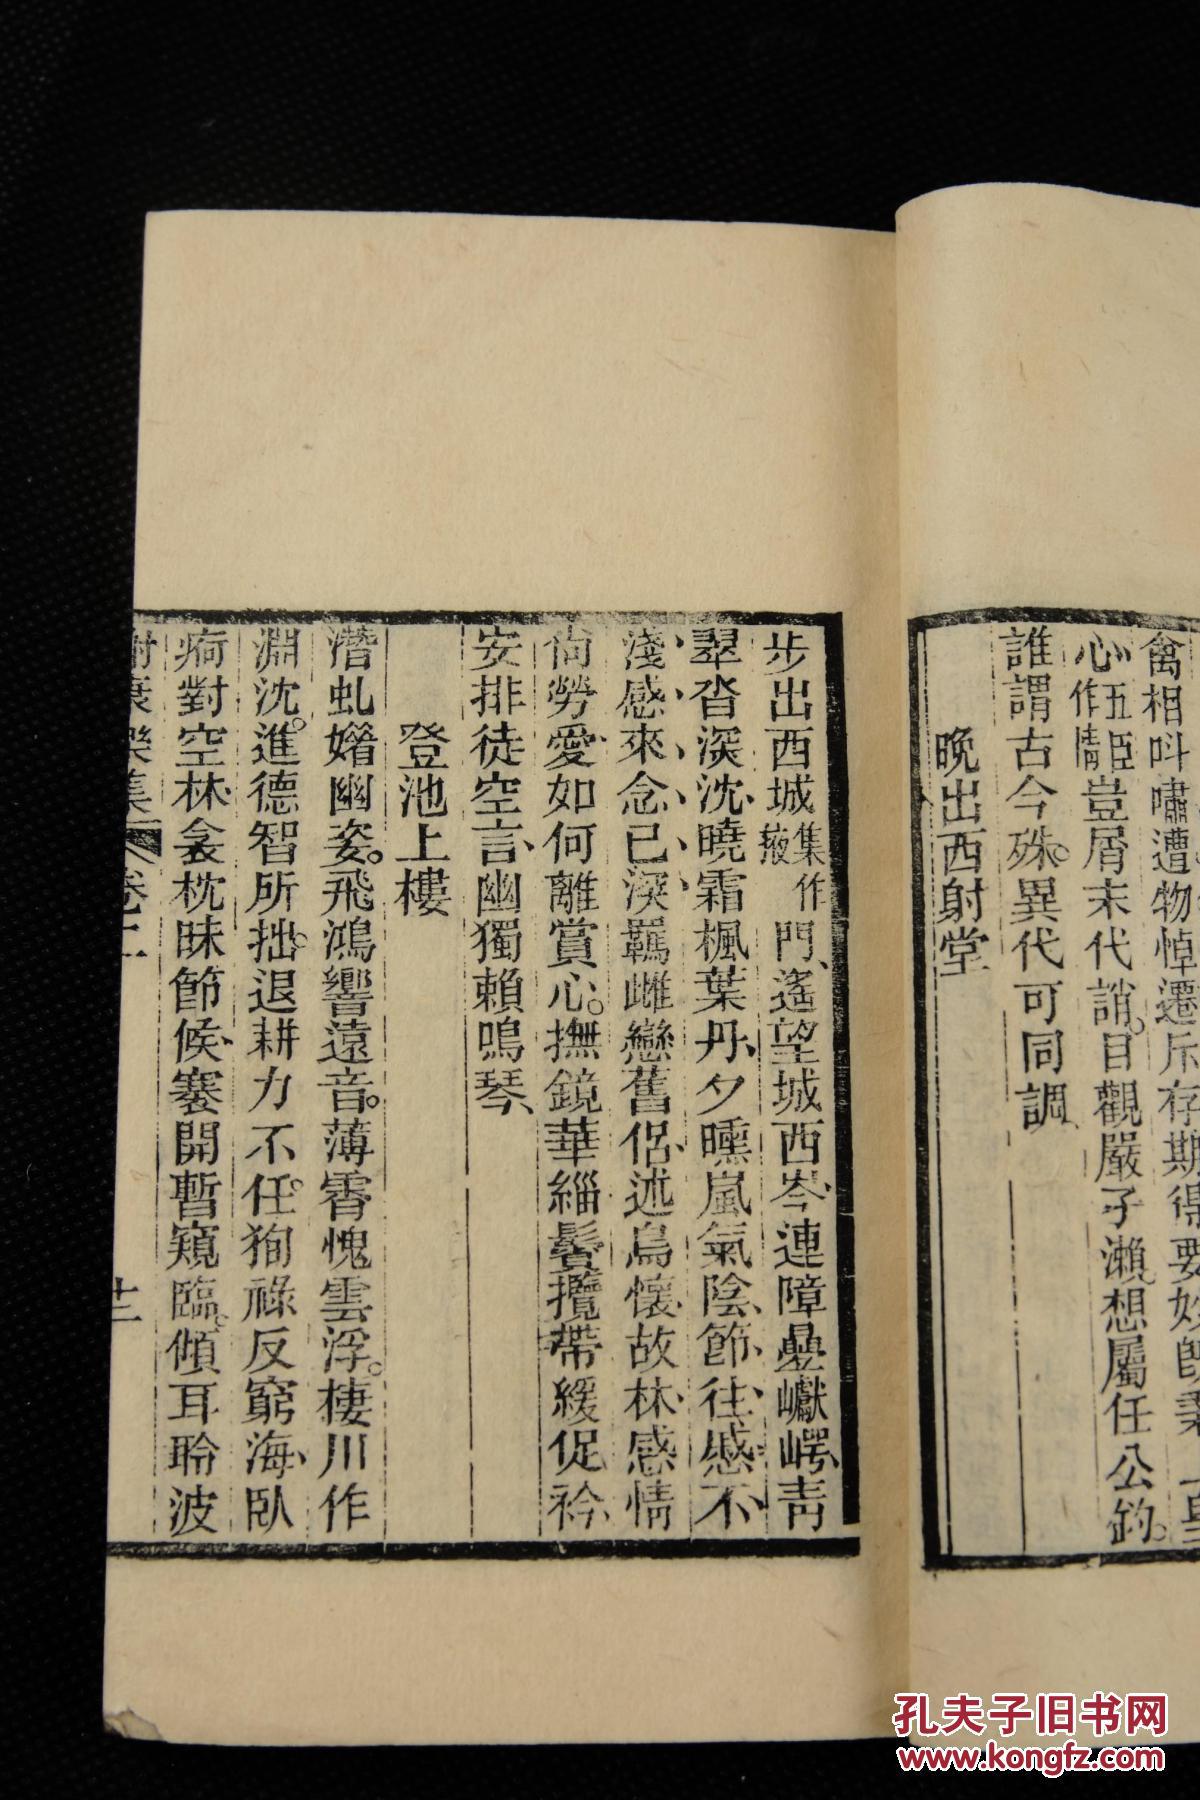 禽相叫嘯遭物悼遷斥存期得要妙旣秉上皇
心五臣作情豈屑末代誚。目觀嚴子瀨、想屬任公釣。
誰謂古今殊。異代可同調、
晚出西射堂
步出西城集作掖門、遙望城西岑、連障疊巘崿、青
翠杳深沈、曉霜楓葉丹、夕曛嵐氣陰、節往慼不
淺感來念已深羈雌戀舊侶、迷鳥懷故林感情
尙勞愛如何離賞心。撫鏡華緇鬢攬帶緩促衿、
安排徒空言、幽獨賴鳴琴、
登池上樓
潛虬媚幽姿。飛鴻響遠音。薄霄愧雲浮。棲川作
淵沈。進德智所拙。退耕力不任。狥祿反窮海、臥
痾對空林、衾枕昧節候、褰開暫窺臨。傾耳聆波
謝康樂集 卷二 廿二
孔夫子旧书网
www.kongfz.com